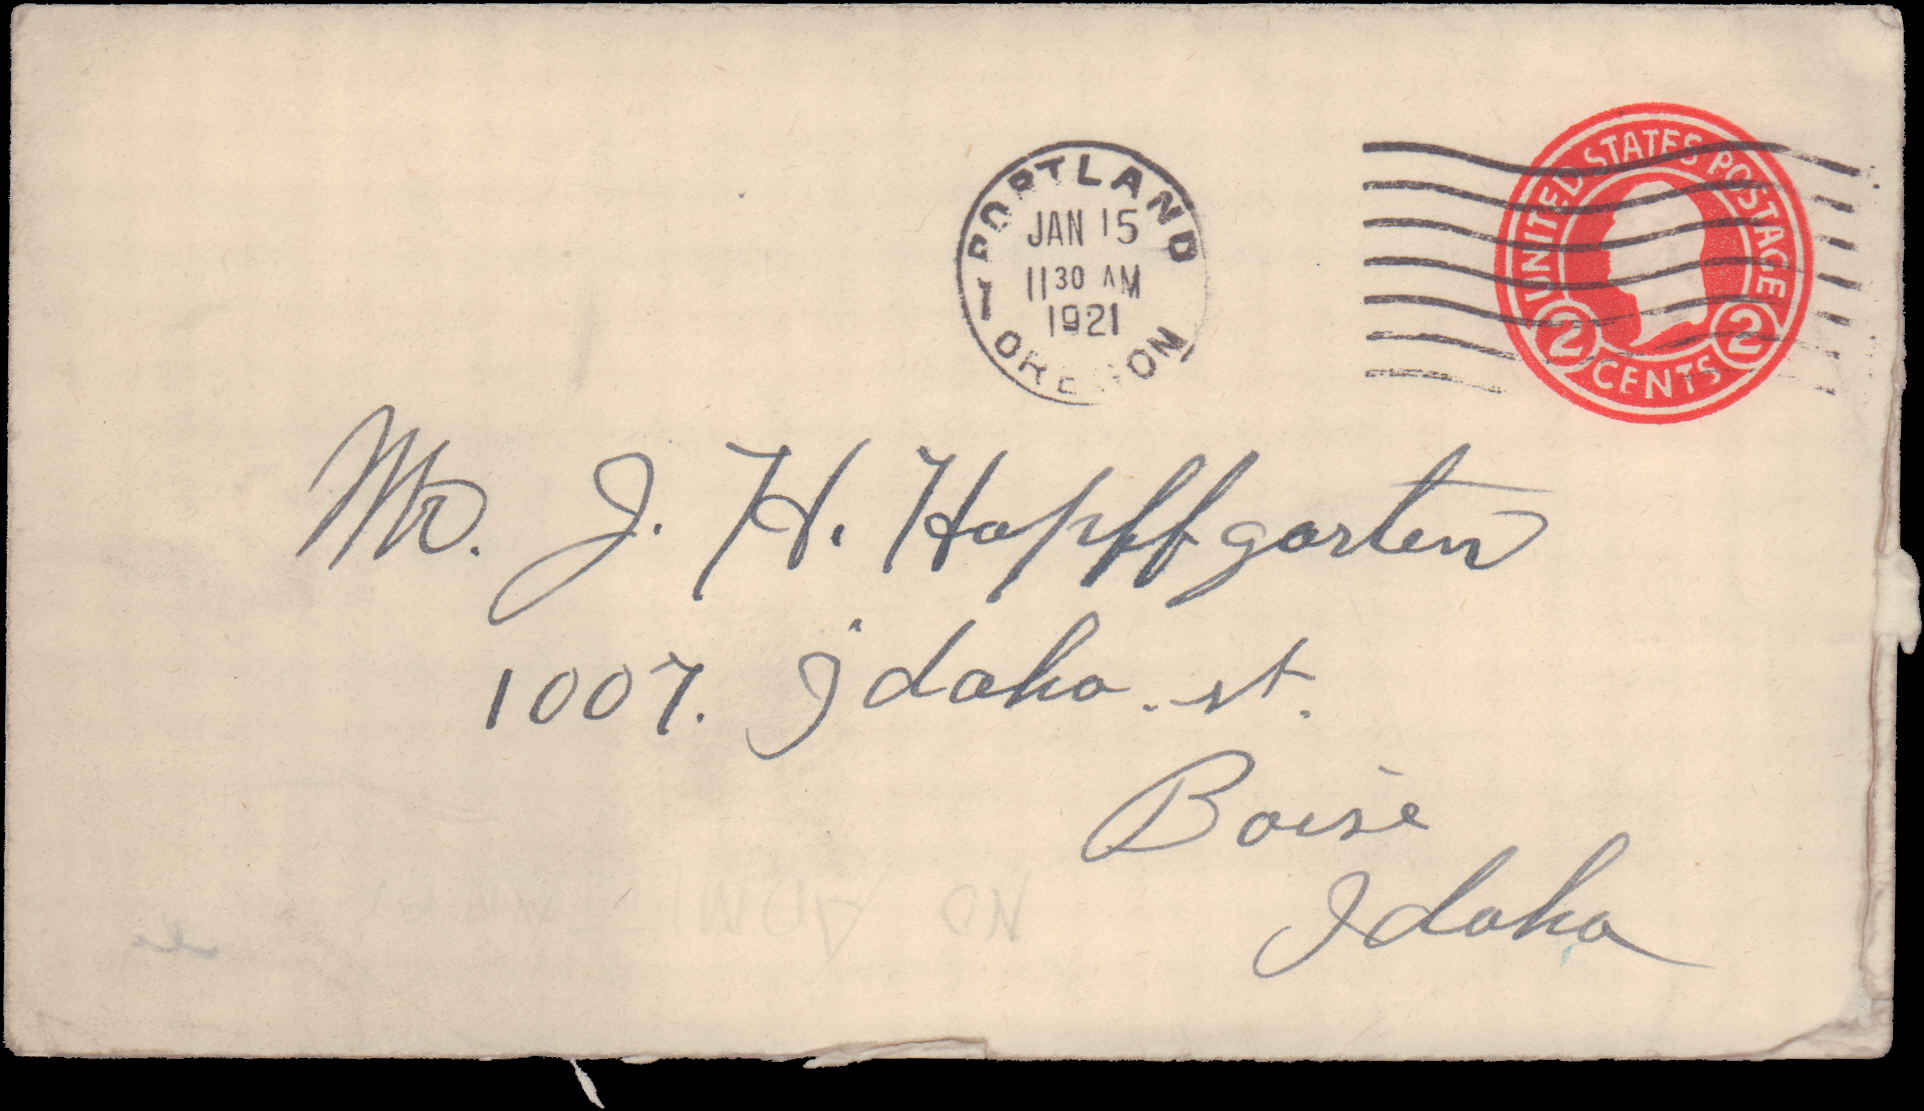 PORTLAND
JAN 15
11 30 AM
1921
1
OREGON
UNITED STATES POSTAGE
2 CENTS 2
Mr. J. H. Hopffgarten
1007. Idaho. st.
Boise
Idaho